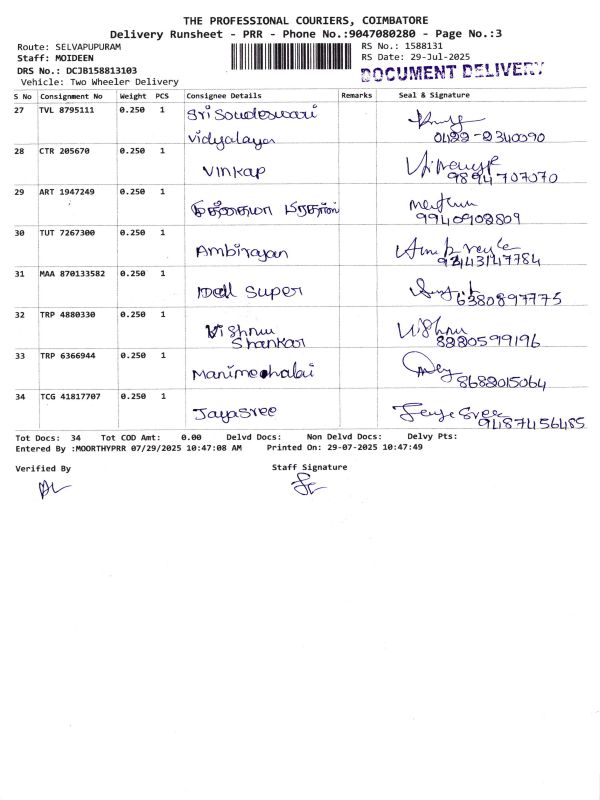 THE PROFESSIONAL COURIERS, COIMBATORE
Delivery Runsheet - PRR - Phone No.:9047080280 - Page No.:3
Route: SELVAPUPURAM
RS No.: 1588131
Staff: MOIDEEN
RS Date: 29-Jul-2025
DRS No.: DCJB158813103
DOCUMENT DELIVERY
Vehicle: Two Wheeler Delivery
S No Consignment No Weight PCS Consignee Details Remarks Seal & Signature
27 TVL 8795111 0.250 1 Sri Soudeswari
Vidyalaya 0422-2340090
28 CTR 205670 0.250 1 Vinkap
9894707070
29 ART 1947249 0.250 1
9940908809
30 TUT 7267300 0.250 1 Ambirayan
31 MAA 870133582 0.250 1 Dall Super
6380897775
32 TRP 4880330 0.250 1 Vishnu
Shankar Vishnu
8380599196
33 TRP 6366944 0.250 1 Manimeehalai
8688015064
34 TCG 41817707 0.250 1 JayaSree
9487456485
Tot Docs: 34 Tot COD Amt: 0.00 Delvd Docs: Non Delvd Docs: Delvy Pts:
Entered By :MOORTHYPRR 07/29/2025 10:47:08 AM Printed On: 29-07-2025 10:47:49
Verified By Staff Signature